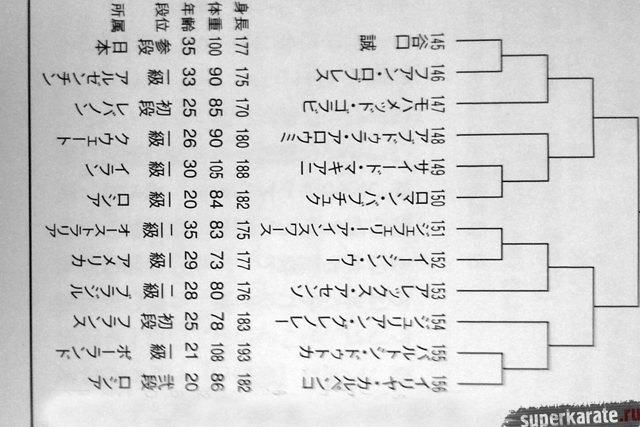 身長 体重 年齢 段位 所属
145 谷口 誠 177 100 35 参段 日本
146 フアン・ロブレス 175 90 33 一級 アルゼンチン
147 モハメッド・ゴラビ 170 85 25 初段 レバノン
148 アブドゥラ・アロウミ 180 90 26 一級 クウェート
149 サイード・マキアニ 188 105 30 一級 イラン
150 ロマン・バブチュク 182 84 20 一級 ロシア
151 ジェフリー・アインスワース 175 83 35 一級 オーストラリア
152 イージン・ウー 177 73 29 一級 アメリカ
153 アレックス・アセンソ 176 80 28 一級 ブラジル
154 ジュリアン・グレノレー 183 78 25 初段 フランス
155 バルトシ・ドゥトカ 193 108 21 一級 ポーランド
156 イリヤ・カルペンコ 182 86 20 弐段 ロシア
superkarate.ru